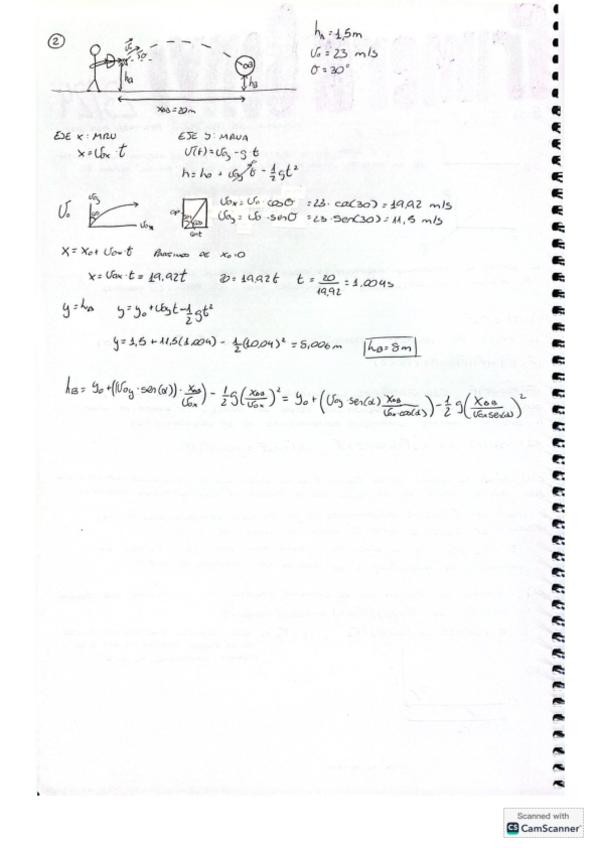 2
hA = 1,5m
v₀ = 23 m/s
σ = 30°
hA
hB
xAB = 20m
EJE X: MRU EJE y: MRUA
x = v₀x · t v(t) = v₀y - g · t
h = h₀ + v₀y t - 1/2 gt²
v₀ v₀y v₀x v₀x = v₀ · cosσ = 23 · cos(30) = 19,92 m/s
v₀y = v₀ · senσ = 23 · sen(30) = 11,5 m/s
x = x₀ + v₀x t PARTIMOS DE x₀ = 0
x = v₀x · t = 19,92t 20 = 19,92t t = 20/19,92 = 1.004s
y = hB y = y₀ + v₀y t - 1/2 gt²
y = 1,5 + 11,5(1.004) - 1/2 (10,04)² = 8,006m hB = 8m
hB = y₀ + ((v₀y · sen(α)) · xAB/v₀x) - 1/2 g(xAB/v₀x)² = y₀ + (v₀y sen(α) xAB/v₀x cos(α)) - 1/2 g(xAB/v₀x sen(α))²
Scanned with
CS CamScanner